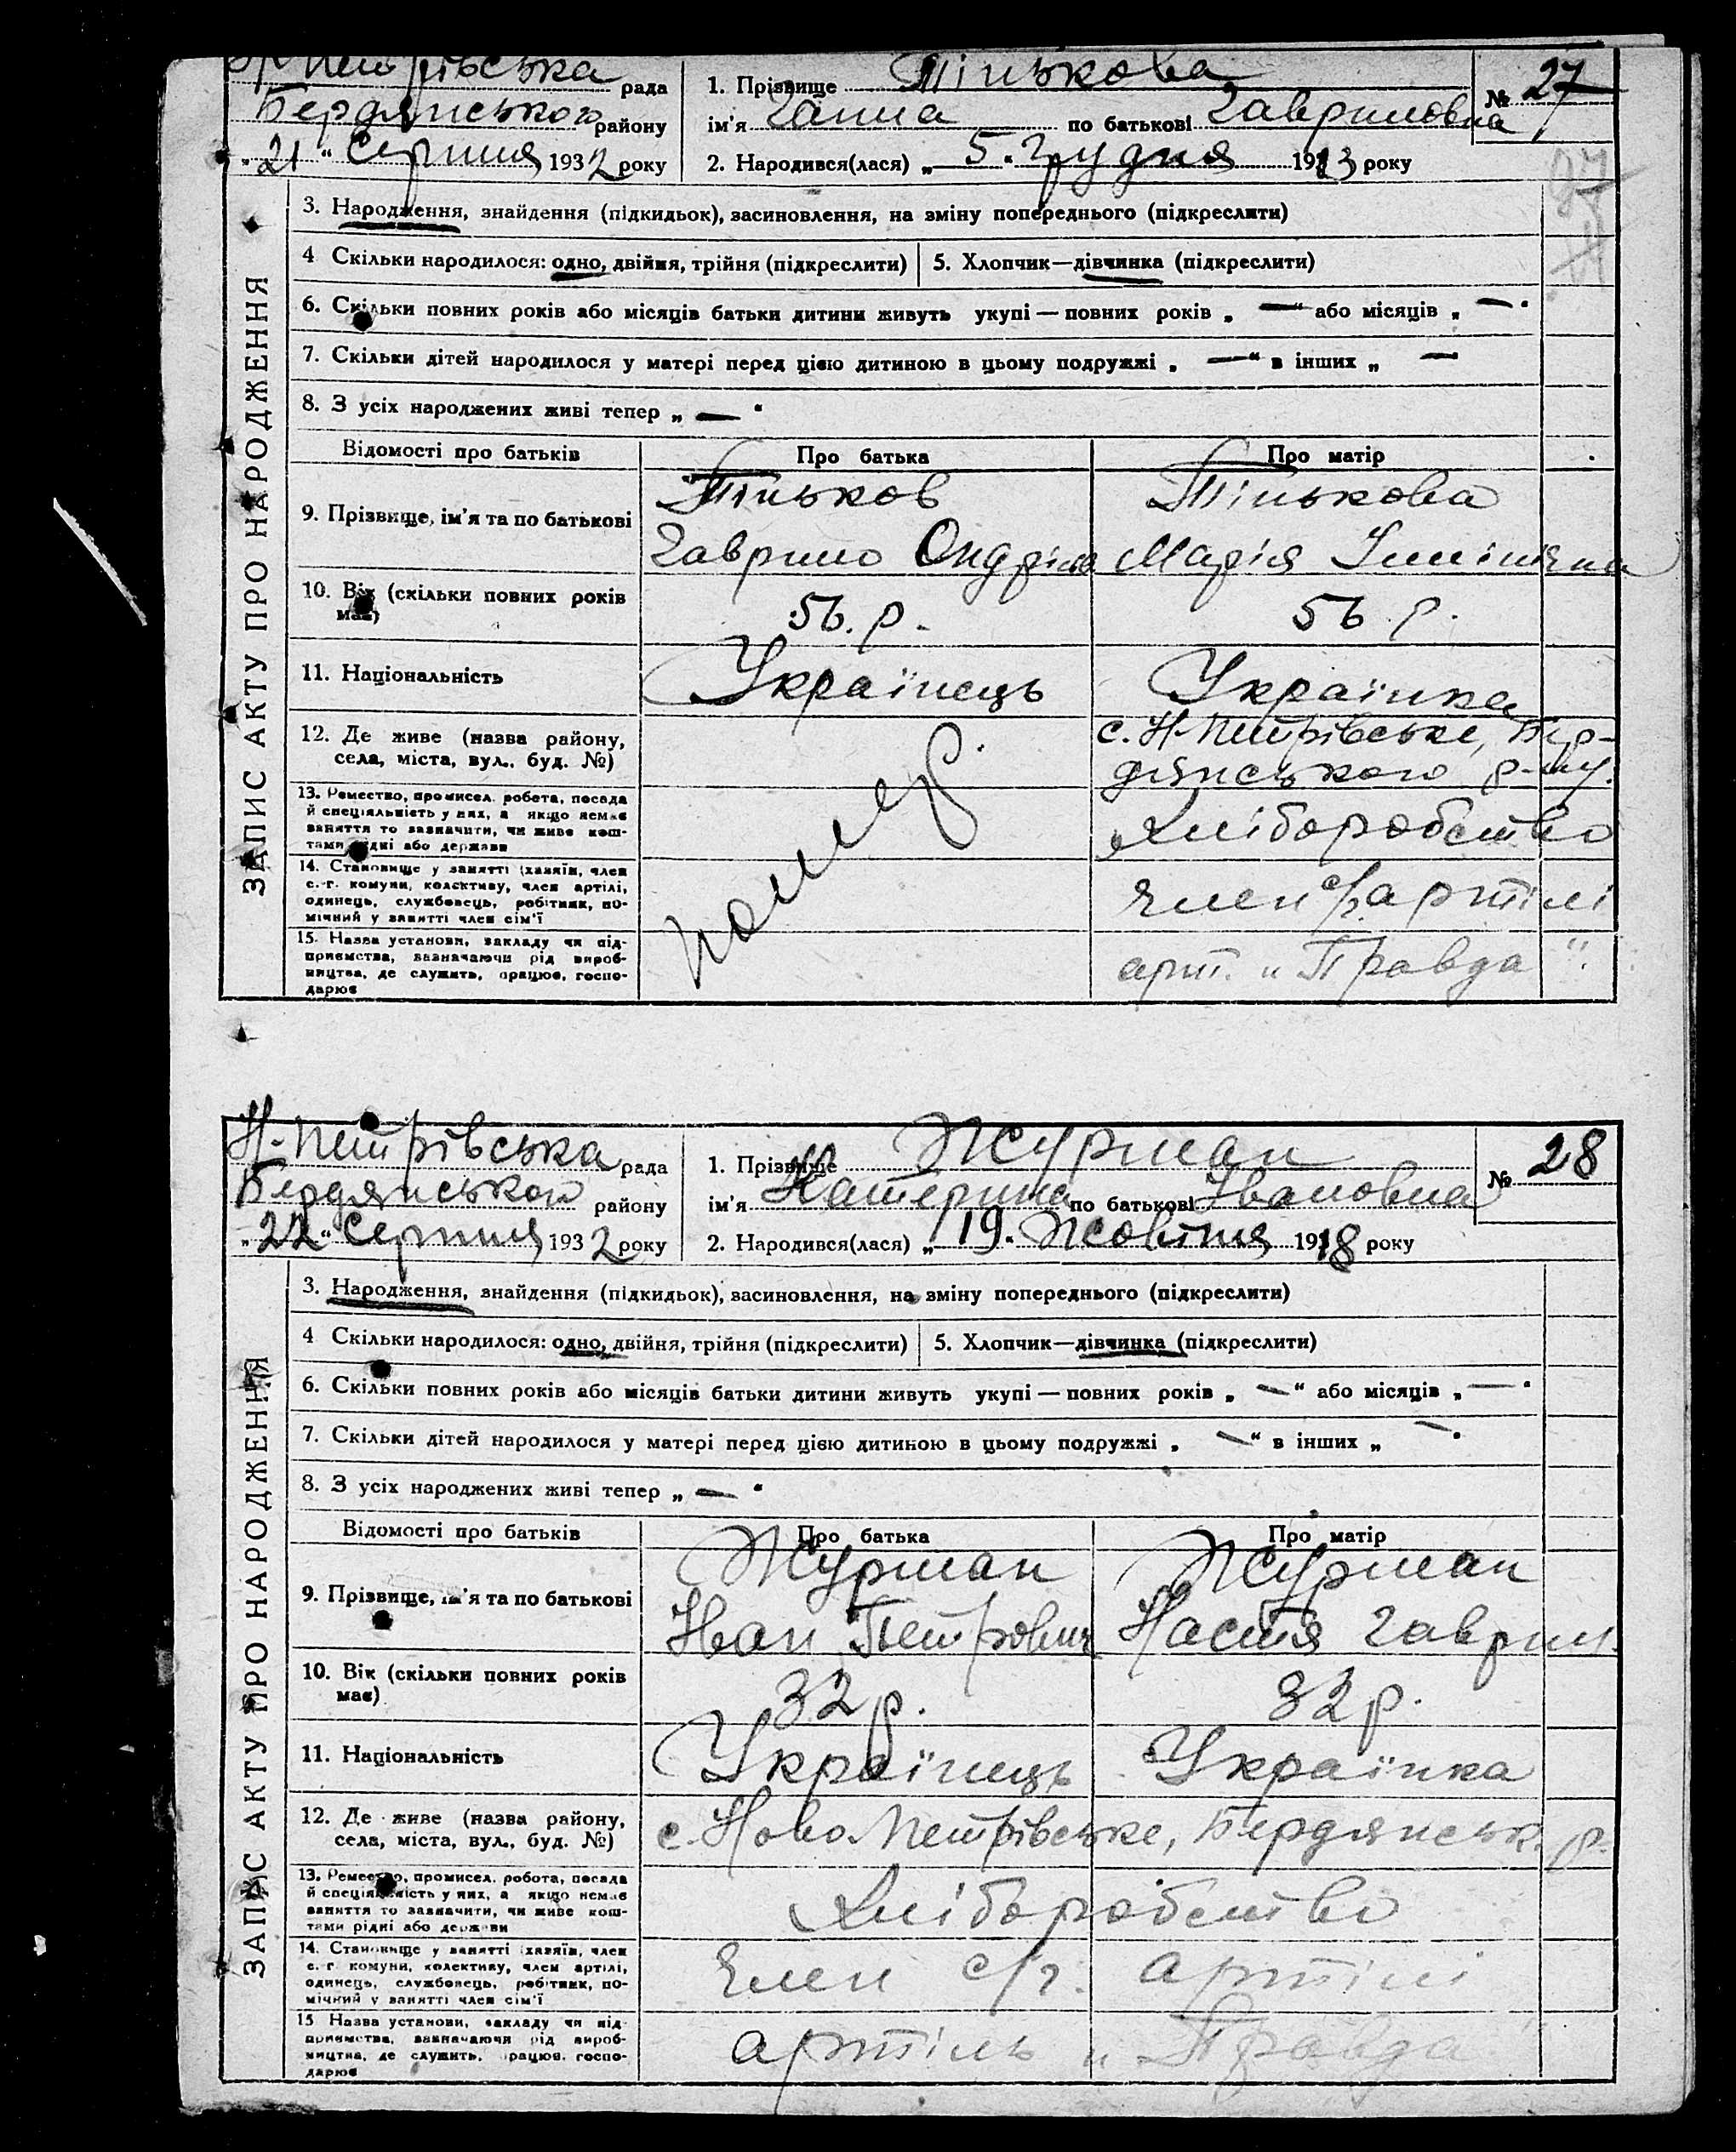 Н-Петрівська рада
Бердянського району
„21“ Серпня 1932 року
1. Прізвище Тінькова
ім'я Ганна по батькові Гавриловна
2. Народився(лася) „5“ Грудня 1913 року
№ 27
3. Народження, знайдення (підкидьок), засиновлення, на зміну попереднього (підкреслити)
4 Скільки народилося: одно, двійня, трійня (підкреслити)
5. Хлопчик—дівчинка (підкреслити)
6. Скільки повних років або місяців батьки дитини живуть укупі — повних років „ — “ або місяців „ — “
7. Скільки дітей народилося у матері перед цією дитиною в цьому подружжі „ — “ в інших „ — “
8. З усіх народжених живі тепер „ — “
ЗАПИС АКТУ ПРО НАРОДЖЕННЯ
Відомості про батьків
Про батька
Про матір
9. Прізвище, ім'я та по батькові
Тіньков
Гаврило
Тінькова
Марія
10. Вік (скільки повних років
має)
56. р.
56 р.
11. Національність
Українець
Українка
12. Де живе (назва району,
села, міста, вул., буд. №)
помер.
с. Н-Петрівське, Бер-
дянського р-ну.
13. Ремество, промисел. робота, посада
й спеціяльність у них, а якщо немає
заняття то зазначити, чи живе кош-
тами рідні або держави
Хліборобство
14. Становище у занятті (хазяїн, член
с.-г. комуни, колективу, член артілі,
одинець, службовець, робітник, по-
мічний у занятті член сім'ї
Член с/г артілі
15. Назва установи, закладу чи під-
приємства, зазначаючи рід вироб-
ництва, де служить, працює, госпо-
дарює
арт. „Правда“.
Н-Петрівська рада
Бердянського району
„22“ Серпня 1932 року
1. Прізвище Журман
ім'я Катерина по батькові Івановна
2. Народився(лася) „19. Жовтня 1918 року
№ 28
3. Народження, знайдення (підкидьок), засиновлення, на зміну попереднього (підкреслити)
4 Скільки народилося: одно, двійня, трійня (підкреслити)
5. Хлопчик—дівчинка (підкреслити)
6. Скільки повних років або місяців батьки дитини живуть укупі — повних років „ — “ або місяців „ — “
7. Скільки дітей народилося у матері перед цією дитиною в цьому подружжі „ — “ в інших „ — “
8. З усіх народжених живі тепер „ — “
ЗАПИС АКТУ ПРО НАРОДЖЕННЯ
Відомості про батьків
Про батька
Про матір
9. Прізвище, ім'я та по батькові
Журман
Иван Петрович
Журман
Настя Гаврил.
10. Вік (скільки повних років
має)
32 р.
32 р.
11. Національність
Українець
Українка
12. Де живе (назва району,
села, міста, вул., буд. №)
с. Ново Петрівське, Бердянськ. р.
13. Ремество, промисел. робота, посада
й спеціяльність у них, а якщо немає
заняття то зазначити, чи живе кош-
тами рідні або держави
Хліборобство
14. Становище у занятті (хазяїн, член
с.-г. комуни, колективу, член артілі,
одинець, службовець, робітник, по-
мічний у занятті член сім'ї
Член с/г. артілі
15 Назва установи, закладу чи під-
приємства, зазначаючи рід вироб-
ництва, де служить, працює, госпо-
дарює
артіль „Правда“